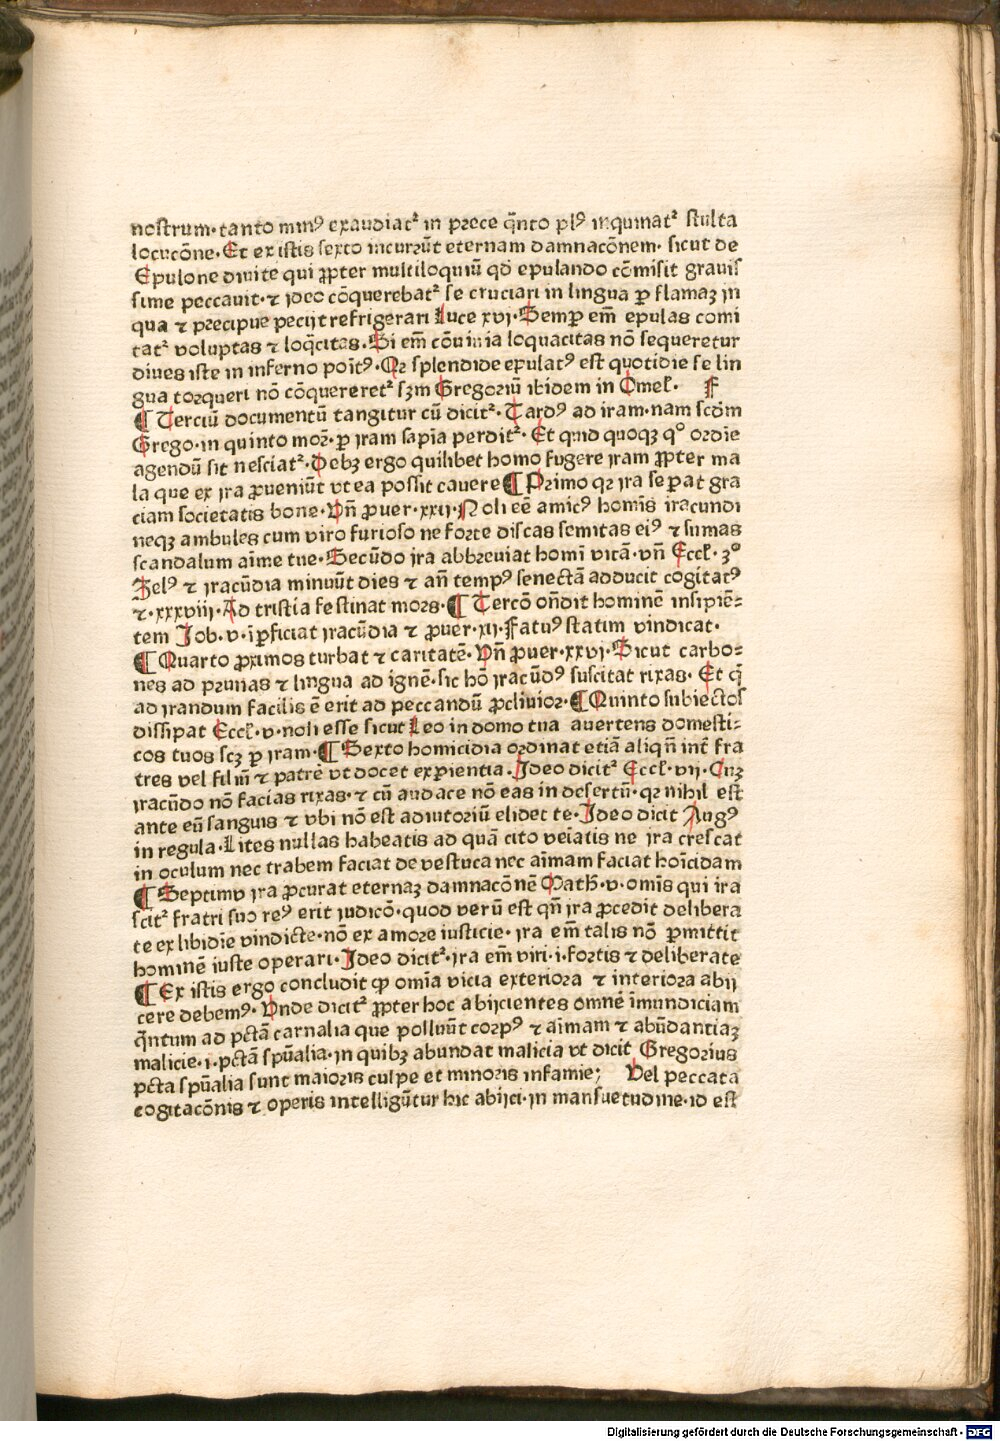 nostrum·tanto minꝰ exaudiatᷣ in prece q̄nto plꝰ inquinatᷣ stulta
locucōne·Et ex istis sexto incurrūt eternam damnacōnem· sicut de
Epulone diuite qui ꝓpter multiloquiū qd̄ epulando cōmisit grauis
sime peccauit·⁊ ideo cōquerebatᷣ se cruciari in lingua ꝑ flamaꝫ in
qua ⁊ precipue pecijt refrigerari Luce xvj·Semꝑ em̄ epulas comi
tatᷣ voluptas ⁊ loq̄citas·Si em̄ cōuiuia loquacitas nō sequeretur
diues iste in inferno poītꝰ·Qꝛ splendide epulatꝰ est quotidie se lin
gua torqueri nō cōquereretᷣ sꝫm Gregoriū ibidem in Omeł· F
¶ Terciū documentū tangitur cū dicitᷣ·Tardꝰ ad iram·nam scdm̄
Grego·in quinto moꝛ·ꝑ iram sapīa perditᷣ·Et quid quoqꝫ qº ordīe
agendū sit nesciatᷣ·Debꝫ ergo quilibet homo fugere iram ꝓpter ma
la que ex ira ꝓueniūt vt ea possit cauere¶ Primo qꝛ ira seꝑat gra
ciam societatis bone·Vn̄ ꝓuer·xxij·Noli eē amicꝰ homīs iracundi
neqꝫ ambules cum viro furioso ne forte discas semitas eiꝰ ⁊ sumas
scandalum aīme tue·Secūdo ira abbreuiat homī vitā·vn̄ Eccł·3º
Zelꝰ ⁊ iracūdia minuūt dies ⁊ an̄ tempꝰ senectā adducit cogitatꝰ
⁊·xxxviij·Ad tristia festinat mors·¶ Tercō on̄dit hominē insipiē⸗
tem Job·v·īꝑficiat iracūdia ⁊ ꝓuer·xij·Fatuꝰ statim vindicat·
¶ Quarto ꝓximos turbat ⁊ caritatē·Vn̄ ꝓuer·xxvj·Sicut carbo⸗
nes ad prunas ⁊ lingua ad ignē·sic hō iracūdꝰ suscitat rixas· Et q̄
ad irandum facilis ē erit ad peccandū ꝓcliuior·¶ Quinto subiectos
dissipat Eccł·v·noli esse sicut Leo in domo tua auertens domesti⸗
cos tuos scꝫ ꝑ iram·¶ Sexto homicidia ordinat etiā aliqn̄ int̄ fra
tres vel filiū ⁊ patrē vt docet exꝑientia·Ideo dicitᷣ Eccł·vij·Cuꝫ
iracūdo nō facias rixas·⁊ cū audace nō eas in desertū·qꝛ nihil est
ante eū sanguis ⁊ vbi nō est adiutoriū elidet te·Ideo dicit Augꝰ
in regula·Lites nullas habeatis ad quā cito veīatis ne ira crescat
in oculum nec trabem faciat de vestuca nec aīmam faciat hoīcidam
¶ Septimo ira ꝓcurat eternaꝫ damnacōnē Math̄·v·omīs qui ira
scitᷣ fratri suo reꝰ erit iudicō·quod verū est qn̄ ira ꝓcedit delibera
te ex libidīe vindicte·nō ex amore iusticie·ira em̄ talis nō ꝑmittit
hominē iuste operari·Ideo dicitᷣ·ira em̄ viri·i·fortis ⁊ deliberate
¶ Ex istis ergo concludit ꝙ omīa vicia exteriora ⁊ interiora abij
cere debemꝰ·Vnde dicitᷣ ꝓpter hoc abijcientes omnē īmundiciam
q̄ntum ad pctā carnalia que polluūt corpꝰ ⁊ aīmam ⁊ abūdantiaꝫ
malicie·i·pctā spūalia·in quibꝫ abundat malicia vt dicit Gregorius
pcta spūalia sunt maioris culpe et minoris infamie; Vel peccata
cogitacōnis ⁊ operis intelligūtur hic abijci·in mansuetudine·id est
Digitalisierung gefördert durch die Deutsche Forschungsgemeinschaft - DFG